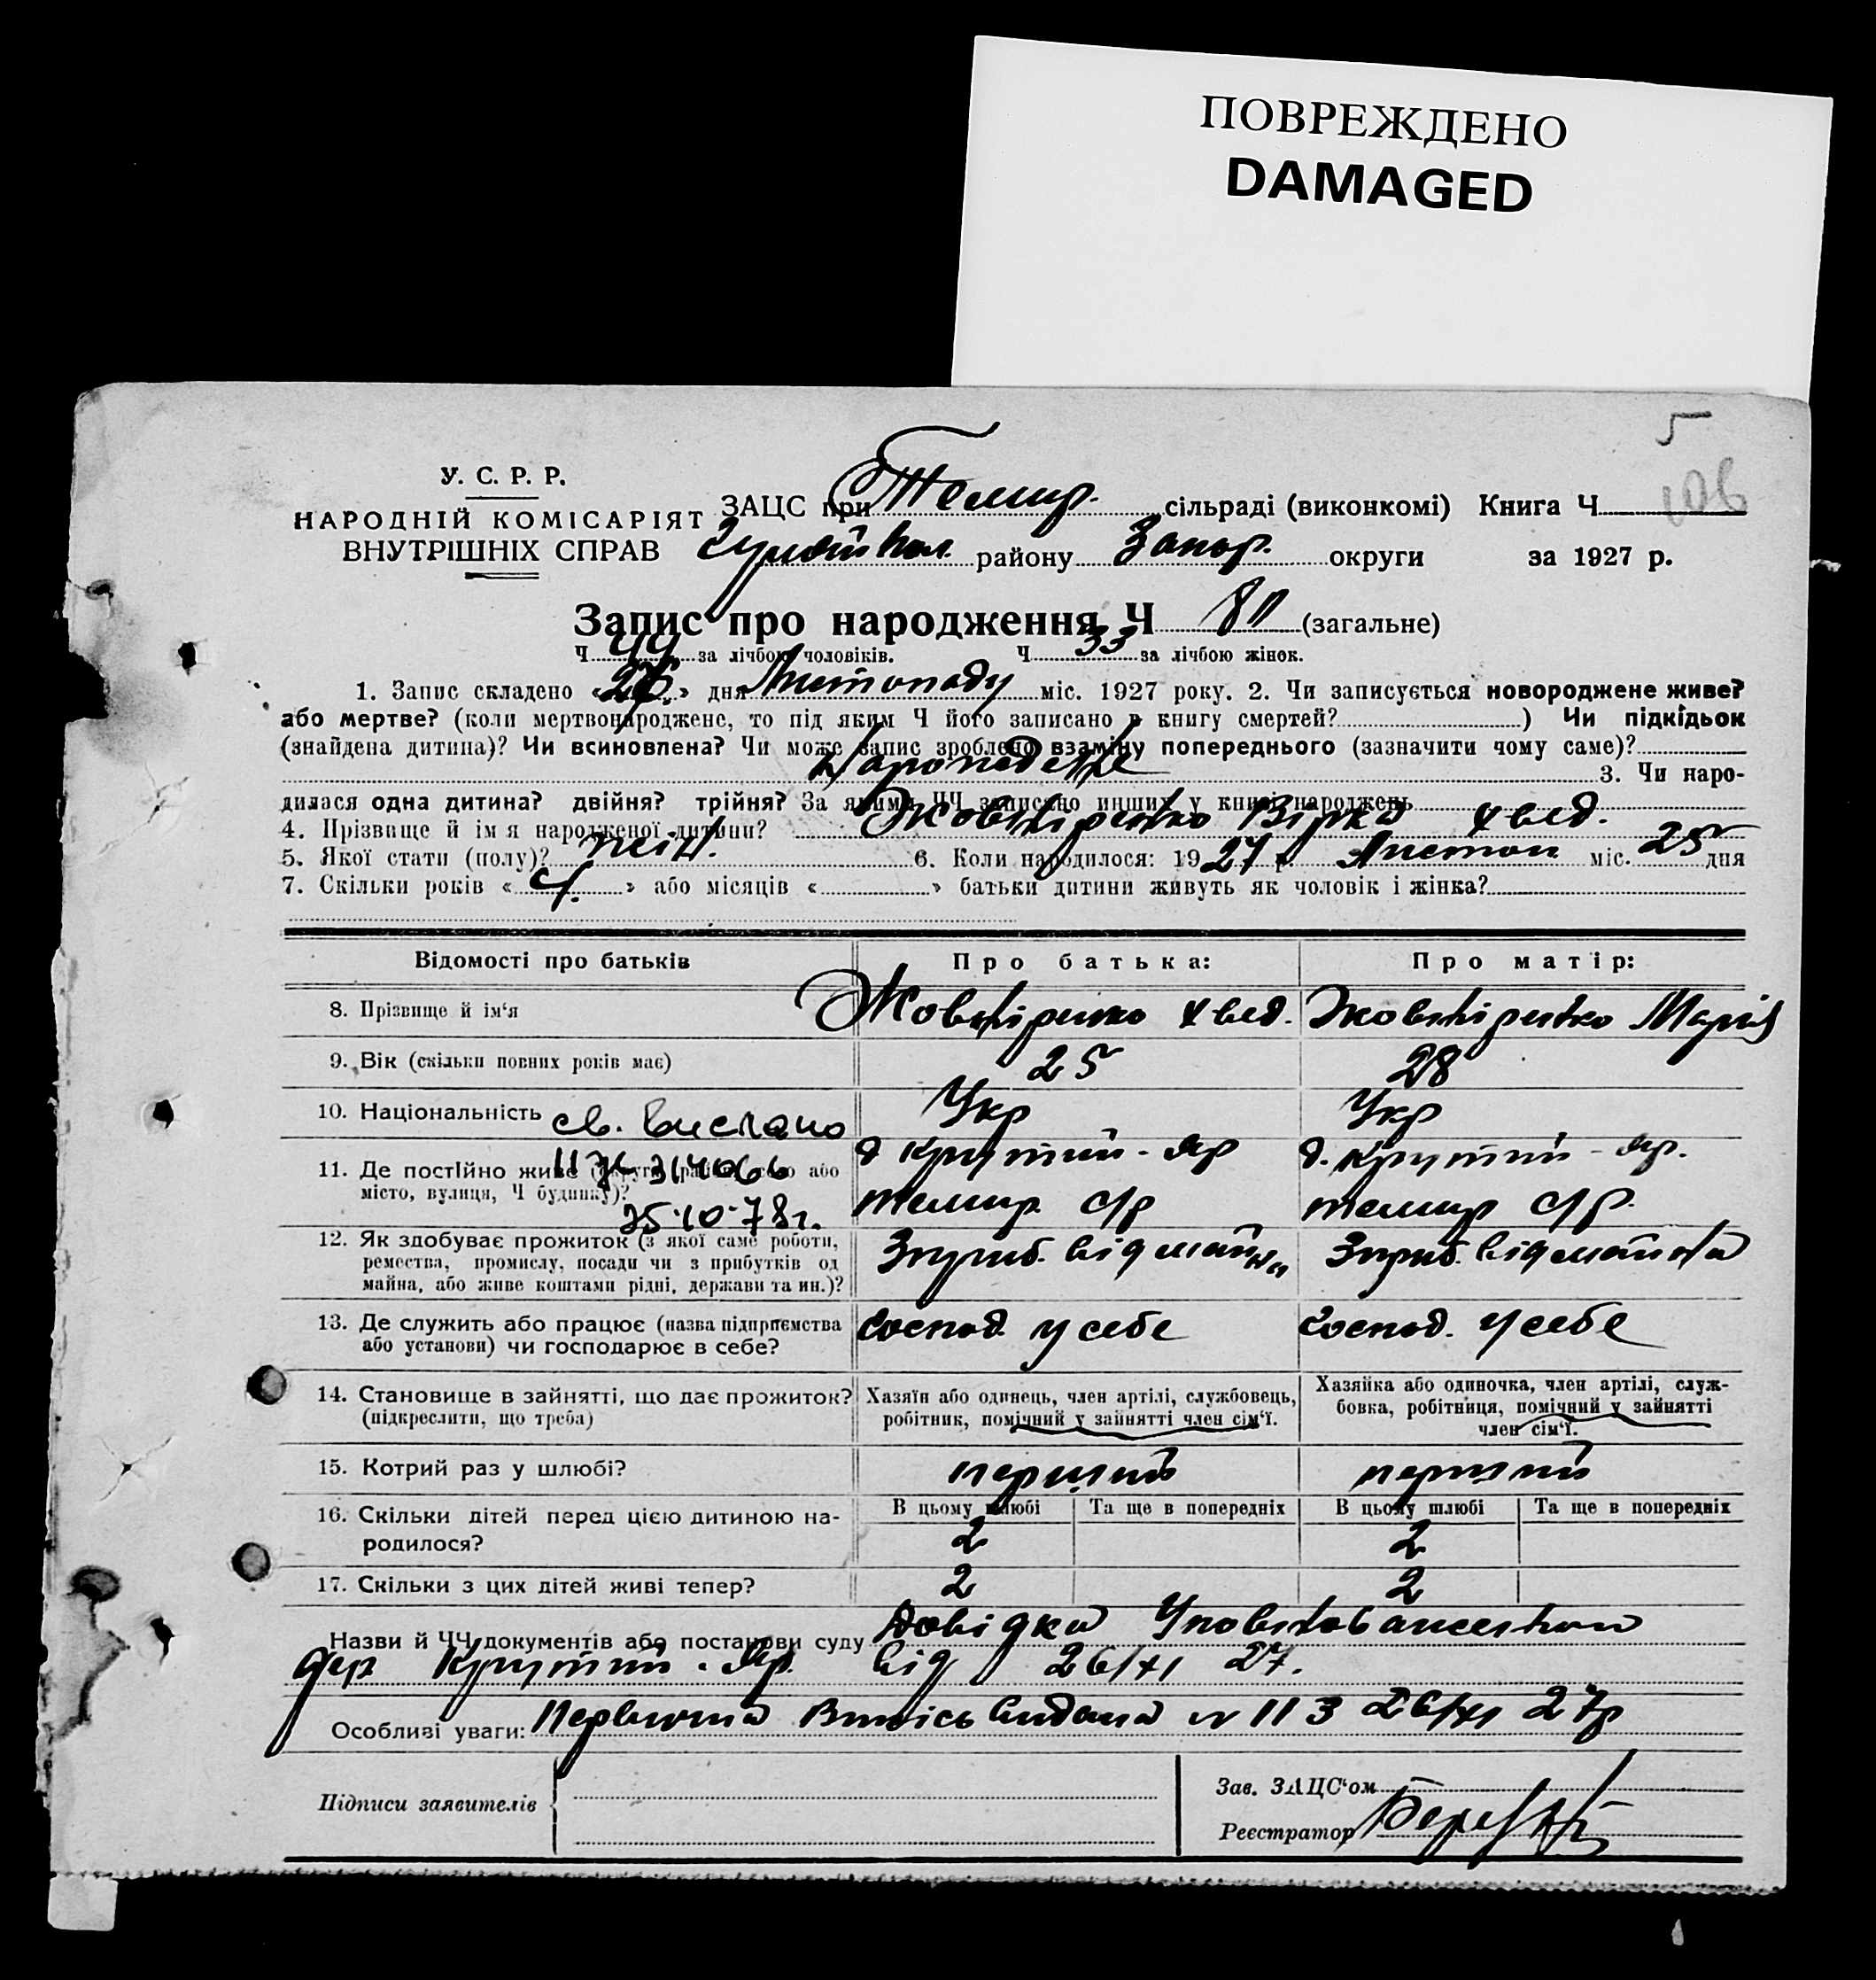 ПОВРЕЖДЕНО
DAMAGED
5
106
У. С. Р. Р.
НАРОДНІЙ КОМІСАРІЯТ
ВНУТРІШНІХ СПРАВ
ЗАЦС при Темир. сільраді (виконкомі) Книга Ч
району Запор. округи за 1927 р.
Запис про народження Ч (загальне)
Ч 44 за лічбою чоловіків. Ч 33 за лічбою жінок.
1. Запис складено «26» дня Листопаду міс. 1927 року. 2. Чи записується новороджене живе?
або мертве? (коли мертвонароджене, то під яким Ч його записано в книгу смертей? ) Чи підкідьок
(знайдена дитина)? Чи всиновлена? Чи може запис зроблено взаміну попереднього (зазначити чому саме)?
3. Чи наро-
дилася одна дитина? двійня? трійня? За якими ЧЧ записано инших у книзі народжень
4. Прізвище й ім я народженої дитини? Жовніренко Вірка Хвед.
5. Якої стати (полу)? жін. 6. Коли народилося: 1927 р. Листоп міс. 25 дня
7. Скільки років « » або місяців « » батьки дитини живуть як чоловік і жінка?
Відомості про батьків Про батька: Про матір:
8. Прізвище й ім'я Жовніренко Хвед. Жовніренко Марія
9. Вік (скільки повних років має) 25 28
10. Національність Укр Укр
св. выслано
11. Де постійно живе (округа, район, село або
місто, вулиця, Ч будинку)?
д Крутий-Яр д. Крутий-Яр.
темир с/р темир с/р.
314066
25.10.78г.
12. Як здобуває прожиток (з якої саме роботи,
ремества, промислу, посади чи з прибутків од
майна, або живе коштами рідні, держави та ин.)?
Зприб. від майна Зприб. від майна
13. Де служить або працює (назва підприємства
або установи) чи господарює в себе?
Господ. у себе Господ. у себе
14. Становище в зайнятті, що дає прожиток?
(підкреслити, що треба)
Хазяїн або одинець, член артілі, службовець,
робітник, помічний у зайнятті член сім'ї.
Хазяйка або одиночка, член артілі, служ-
бовка, робітниця, помічний у зайнятті
член сім'ї.
15. Котрий раз у шлюбі? перший перший
16. Скільки дітей перед цією дитиною на-
родилося?
В цьому шлюбі Та ще в попередніх В цьому шлюбі Та ще в попередніх
2 2
17. Скільки з цих дітей живі тепер? 2 2
Назви й ЧЧ документів або постанови суду Довідка
дер Крутий-Яр. від 26/XI 27.
Особливі уваги: Первична Випись видана № 113 26/XI 27р
Підписи заявителів
Зав. ЗАЦС'ом
Реєстратор